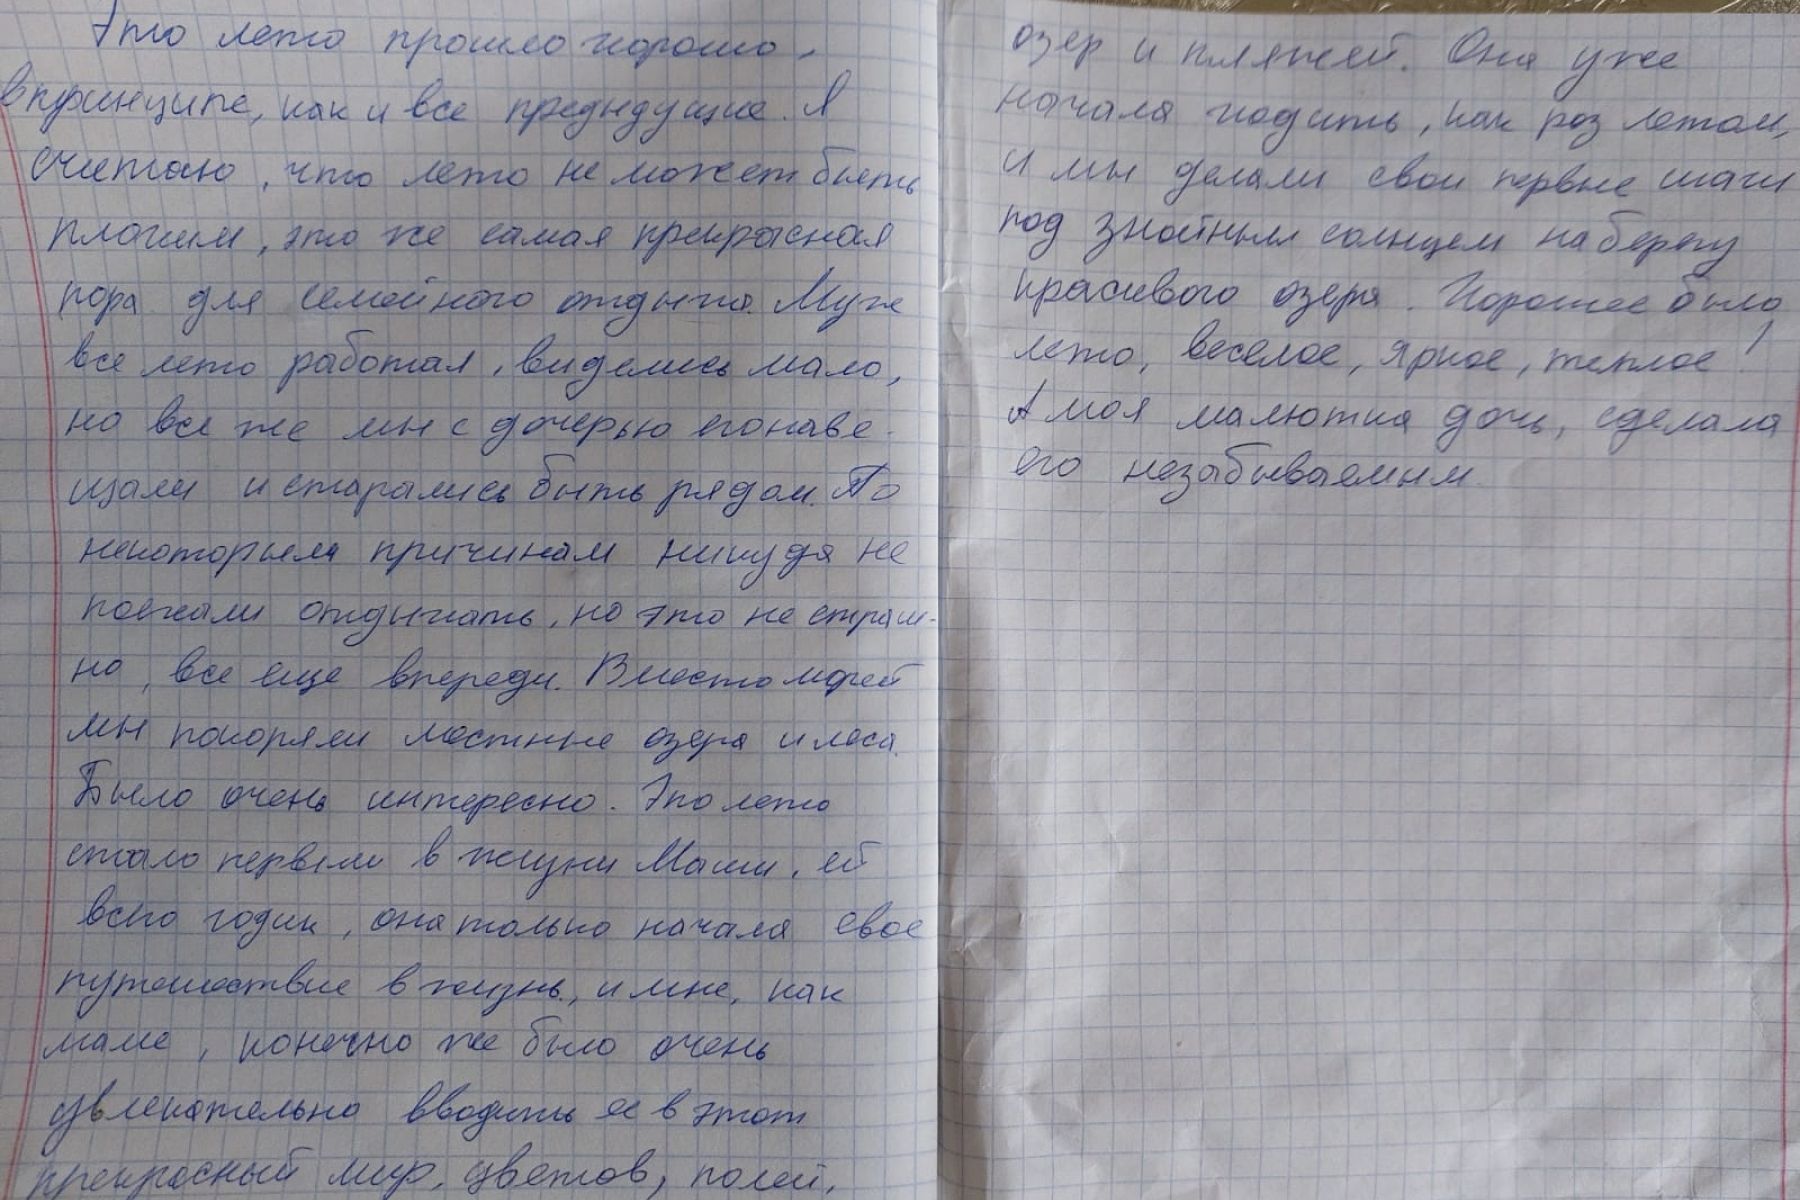 Это лето прошло хорошо,
впринципе, как и все предыдущие. Я
считаю, что лето не может быть
плохим, это же самая прекрасная
пора для семейного отдыха. Муж
все лето работал, виделись мало,
но все же мы с дочерью его наве-
щали и старались быть рядом. По
некоторым причинам никуда не
поехали отдыхать, но это не страш-
но, все еще впереди. Вместо морей
мы покоряли местные озера и леса.
Было очень интересно. Это лето
стало первым в жизни Маши, ей
всего годик, она только начала свое
путешествие в жизнь, и мне, как
маме, конечно же было очень
увлекательно вводить ее в этот
прекрасный мир, цветов, полей,
озер и пляжей. Она уже
начала ходить, как раз летом,
и мы делали свои первые шаги
под знойным солнцем на берегу
красивого озера. Хорошее было
лето, веселое, яркое, теплое!
А моя малютка дочь, сделала
его незабываемым.